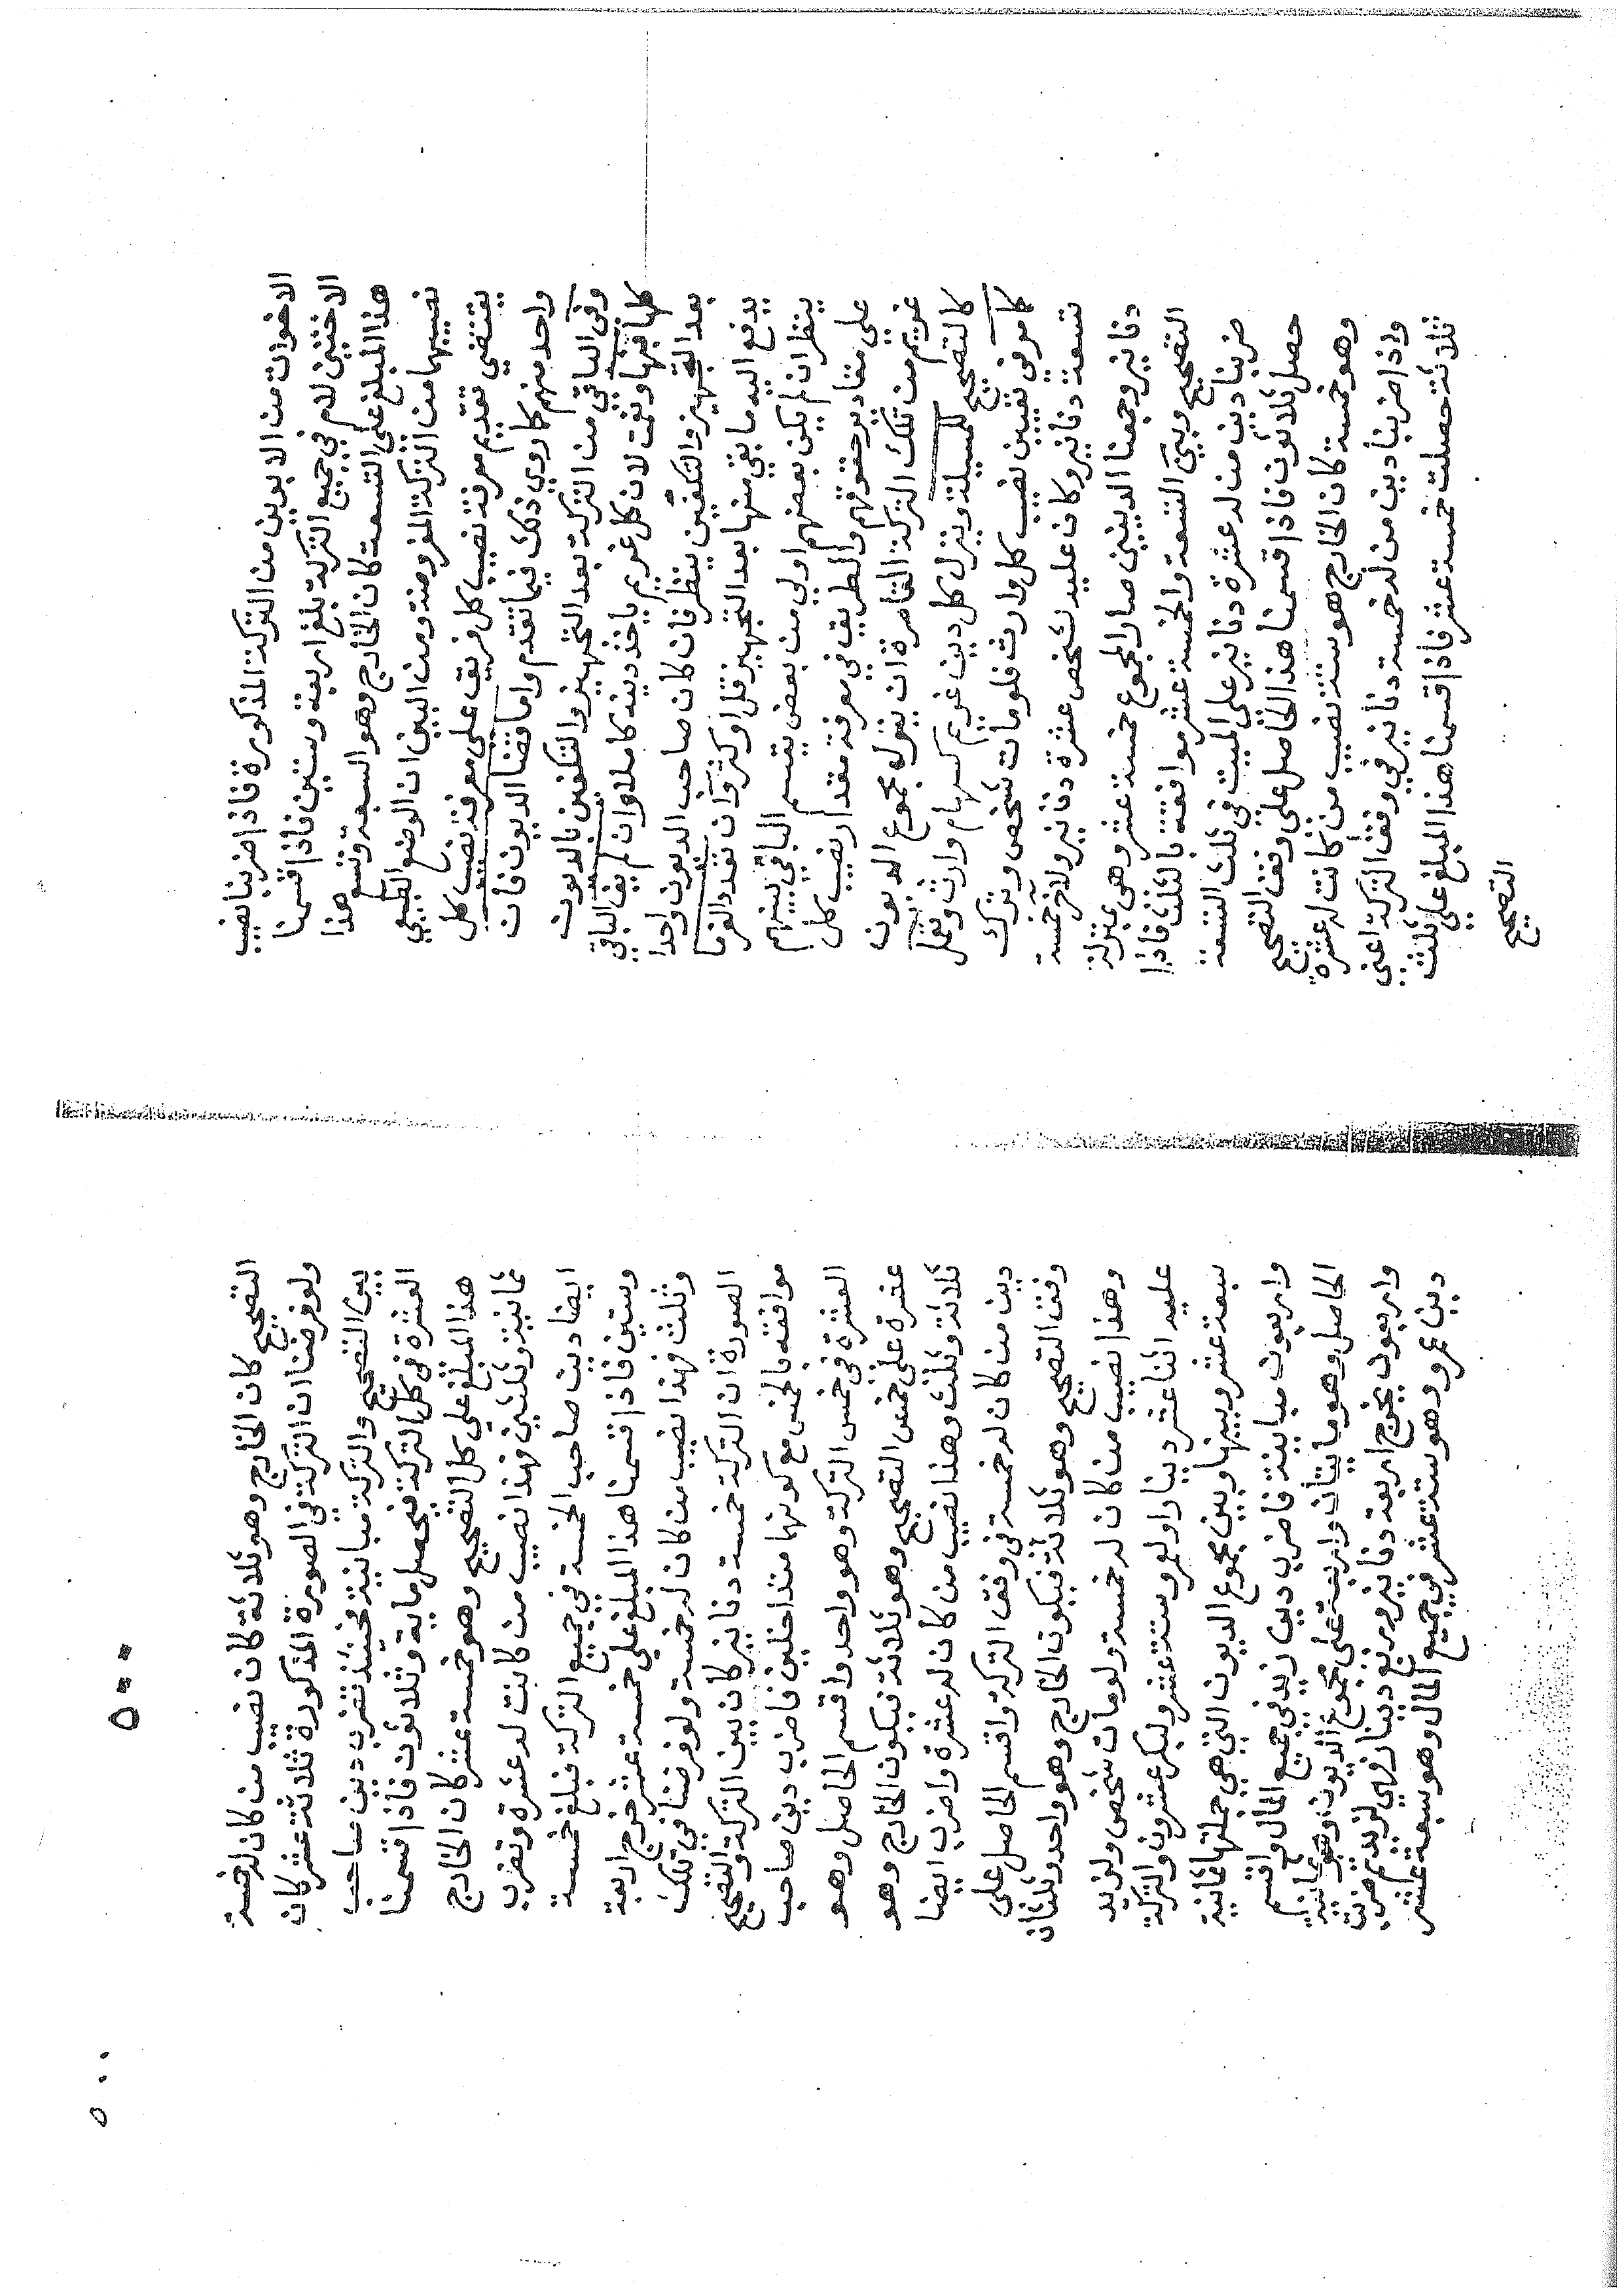 الاخوات من الابوين من التركة المذكورة فاذا ضربنا نصيب
الاختين لام في جميع التركة بلغ اربعة وستين فاذا قسمنا
هذا المبلغ على التسعة كان الخارج وهو السبعة وتسع هذا
نصيبهما من التركة المفروضة ومن البين ان الوضع الطبيعي
يقتضي تقديم معرفة نصيب كل فريق على معرفة نصيب كل
واحد منهم كما روي ذلك فيما تقدم واما قضا الديون فان
وفى الباقي من التركة بعد التجهيز والتكفين بالديون
كلها فبها ونعمت لان كل غريم ياخذ دينه كاملا وان لم يف الباقي
بعد التجهيز والتكفين ينظر فان كان صاحب الديون واحدا
يدفع اليه ما بقي منها بعد التجهيز قل او كثر وان تعدد الغرما
ينظر ان لم يكن بعضهم اولى من بعض يقسم الباقي بينهم
على مقادير حقوقهم والطريق في معرفة مقدار نصيب كل
غريم من تلك التركة القاصرة ان يقول مجموع الديون
كالتصحيح للمسيلة وينزل كل دين غريم كسهام وارث وتعمل
كما مر في تعيين نصيب كل وارث فلو مات شخص وترك
تسعة دنانير وكان عليه لشخص عشرة دنانير ولاخر خمسة
دنانير وجمعنا الدينين صار المجموع خمسة عشر وهى بمنزلة
التصحيح وبين التسعة والخمسة عشر موافقة بالثلث فاذا
ضربنا دين من له عشرة دنانير على الميت في ثلث التسعة
حصل ثلاثون فاذا قسمنا هذا الحاصل على وفق التصحيح
وهو خمسة كان الخارج هو ستة نصيب من كانت له عشرة
واذا ضربنا دين من له خمسة دنانير في وفق التركة اعنى
ثلاثة حصلت خمسة عشر فاذا قسمنا هذا المبلغ على ثلث
التصحيح
التصحيح كان الخارج وهو ثلاثة كان نصيب من كان له خمسة
ولو فرضنا ان التركة في الصورة المذكورة ثلاثة عشر كان
بين التصحيح والتركة مباينة فحينئذ تضرب دين صاحب
العشرة في كل التركة فيحصل ماية وثلاثون فاذا قسمنا
هذا المبلغ على كل التصحيح وهو خمسة عشر كان الخارج
ثمانية وثلثين فهذا نصيب من كانت له عشرة وتضرب
ايضا دين صاحب الخمسة في جميع التركة فبلغ خمسة
وستين فاذا قسمنا هذا المبلغ على خمسة عشر خرج اربعة
وثلث فهذا نصيب من كان له خمسة ولو فرضنا في تلك
الصورة ان التركة خمسة دنانير كان بين التركة والتصحيح
موافقة بالخمس مع كونهما متداخلين فاضرب دين صاحب
العشرة في خمس التركة وهو واحد واقسم الحاصل وهو
عشرة على خمس التصحيح وهو ثلاثة فيكون الخارج وهو
ثلاثة وثلث وهذا نصيب من كان له عشرة واضرب ايضا
دين من كان له خمسة في وفق التركة واقسم الحاصل على
وفق التصحيح وهو ثلاثة فيكون الخارج وهو واحد وثلثان
وهذا نصيب من كان له خمسة ولو مات شخص ولزيد
عليه اثنا عشر دينارا ولعمرو ستة عشر ولبكر عشرون والتركة
سبعة عشر وبينها وبين مجموع الديون التي هي جملتها ثمانية
واربعون مباينة فاضرب دين زيد في جميع المال واقسم
الحاصل وهو مايتان واربعة على مجموع الديون وهو ثمانية
واربعون يخرج اربعة دنانير وربع دينار فهي لزيد ثم ضربت
دين عمرو وهو ستة عشر في جميع المال وهو سبعة عشر